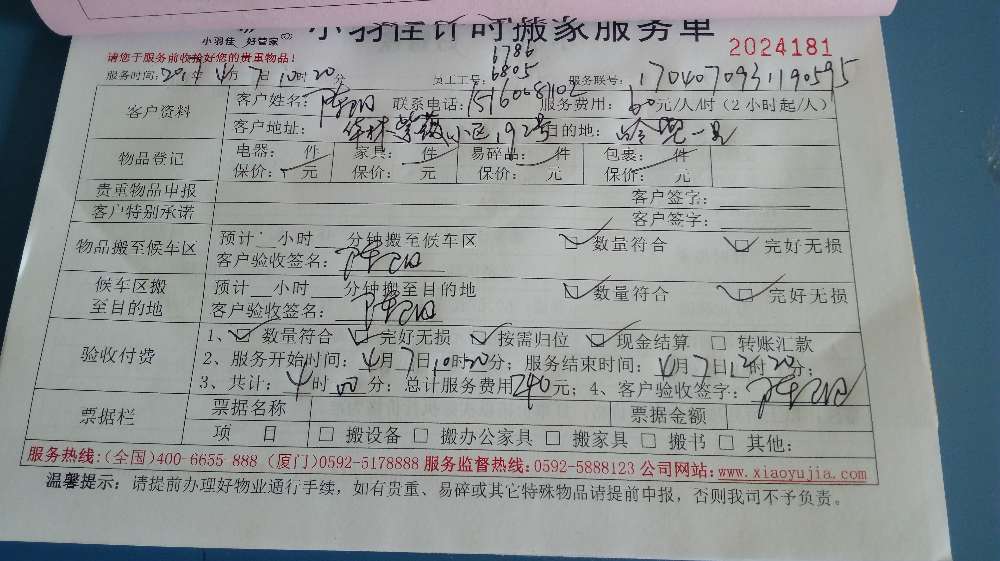 小羽佳 好管家
小羽佳计时搬家服务单
请您于服务前收拾好您的贵重物品!
2024181
6786
服务时间:2017年4月7日10时20分 员工工号:6805 服务联号:1704070931190595
客户资料 客户姓名: 联系电话:15160068102 服务费用:60元/人/时(2小时起/人)
客户地址:华林紫薇小区,92号 目的地:
物品登记 电器: 件 家具: 件 易碎品: 件 包裹: 件
保价: 元 保价: 元 保价: 元 保价: 元
贵重物品申报 客户签字:
客户特别承诺 客户签字:
物品搬至候车区 预计 小时 分钟搬至候车区 数量符合 完好无损
客户验收签名:
候车区搬至目的地 预计 小时 分钟搬至目的地 数量符合 完好无损
客户验收签名:
验收付费 1、数量符合 完好无损 按需归位 现金结算 转账汇款
2、服务开始时间:4月7日10时20分;服务结束时间:4月7日12时20分;
3、共计:4时00分;总计服务费用240元;4、客户验收签字:
票据栏 票据名称 票据金额
项 目 搬设备 搬办公家具 搬家具 搬书 其他:
服务热线:(全国)400-6655-888 (厦门)0592-5178888 服务监督热线:0592-5888123 公司网站:www.xiaoyujia.com
温馨提示:请提前办理好物业通行手续,如有贵重、易碎或其它特殊物品请提前申报,否则我司不予负责。